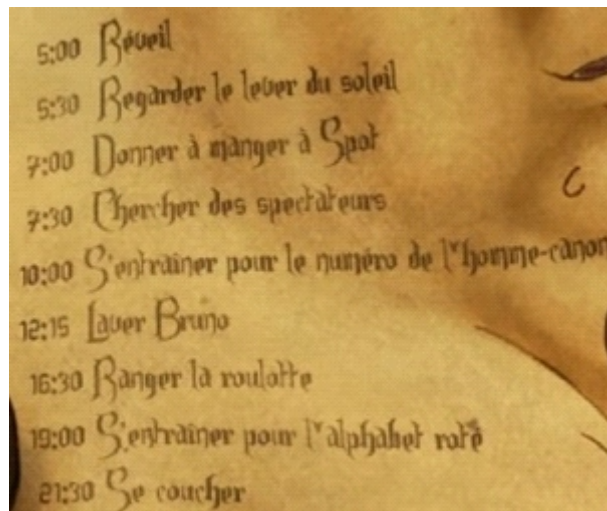 5:00 Réveil
5:30 Regarder le lever du soleil
7:00 Donner à manger à Spot
7:30 Chercher des spectateurs
10:00 S'entraîner pour le numéro de l'homme-canon
12:15 Laver Bruno
16:30 Ranger la roulotte
19:00 S'entraîner pour l'alphabet roté
21:30 Se coucher